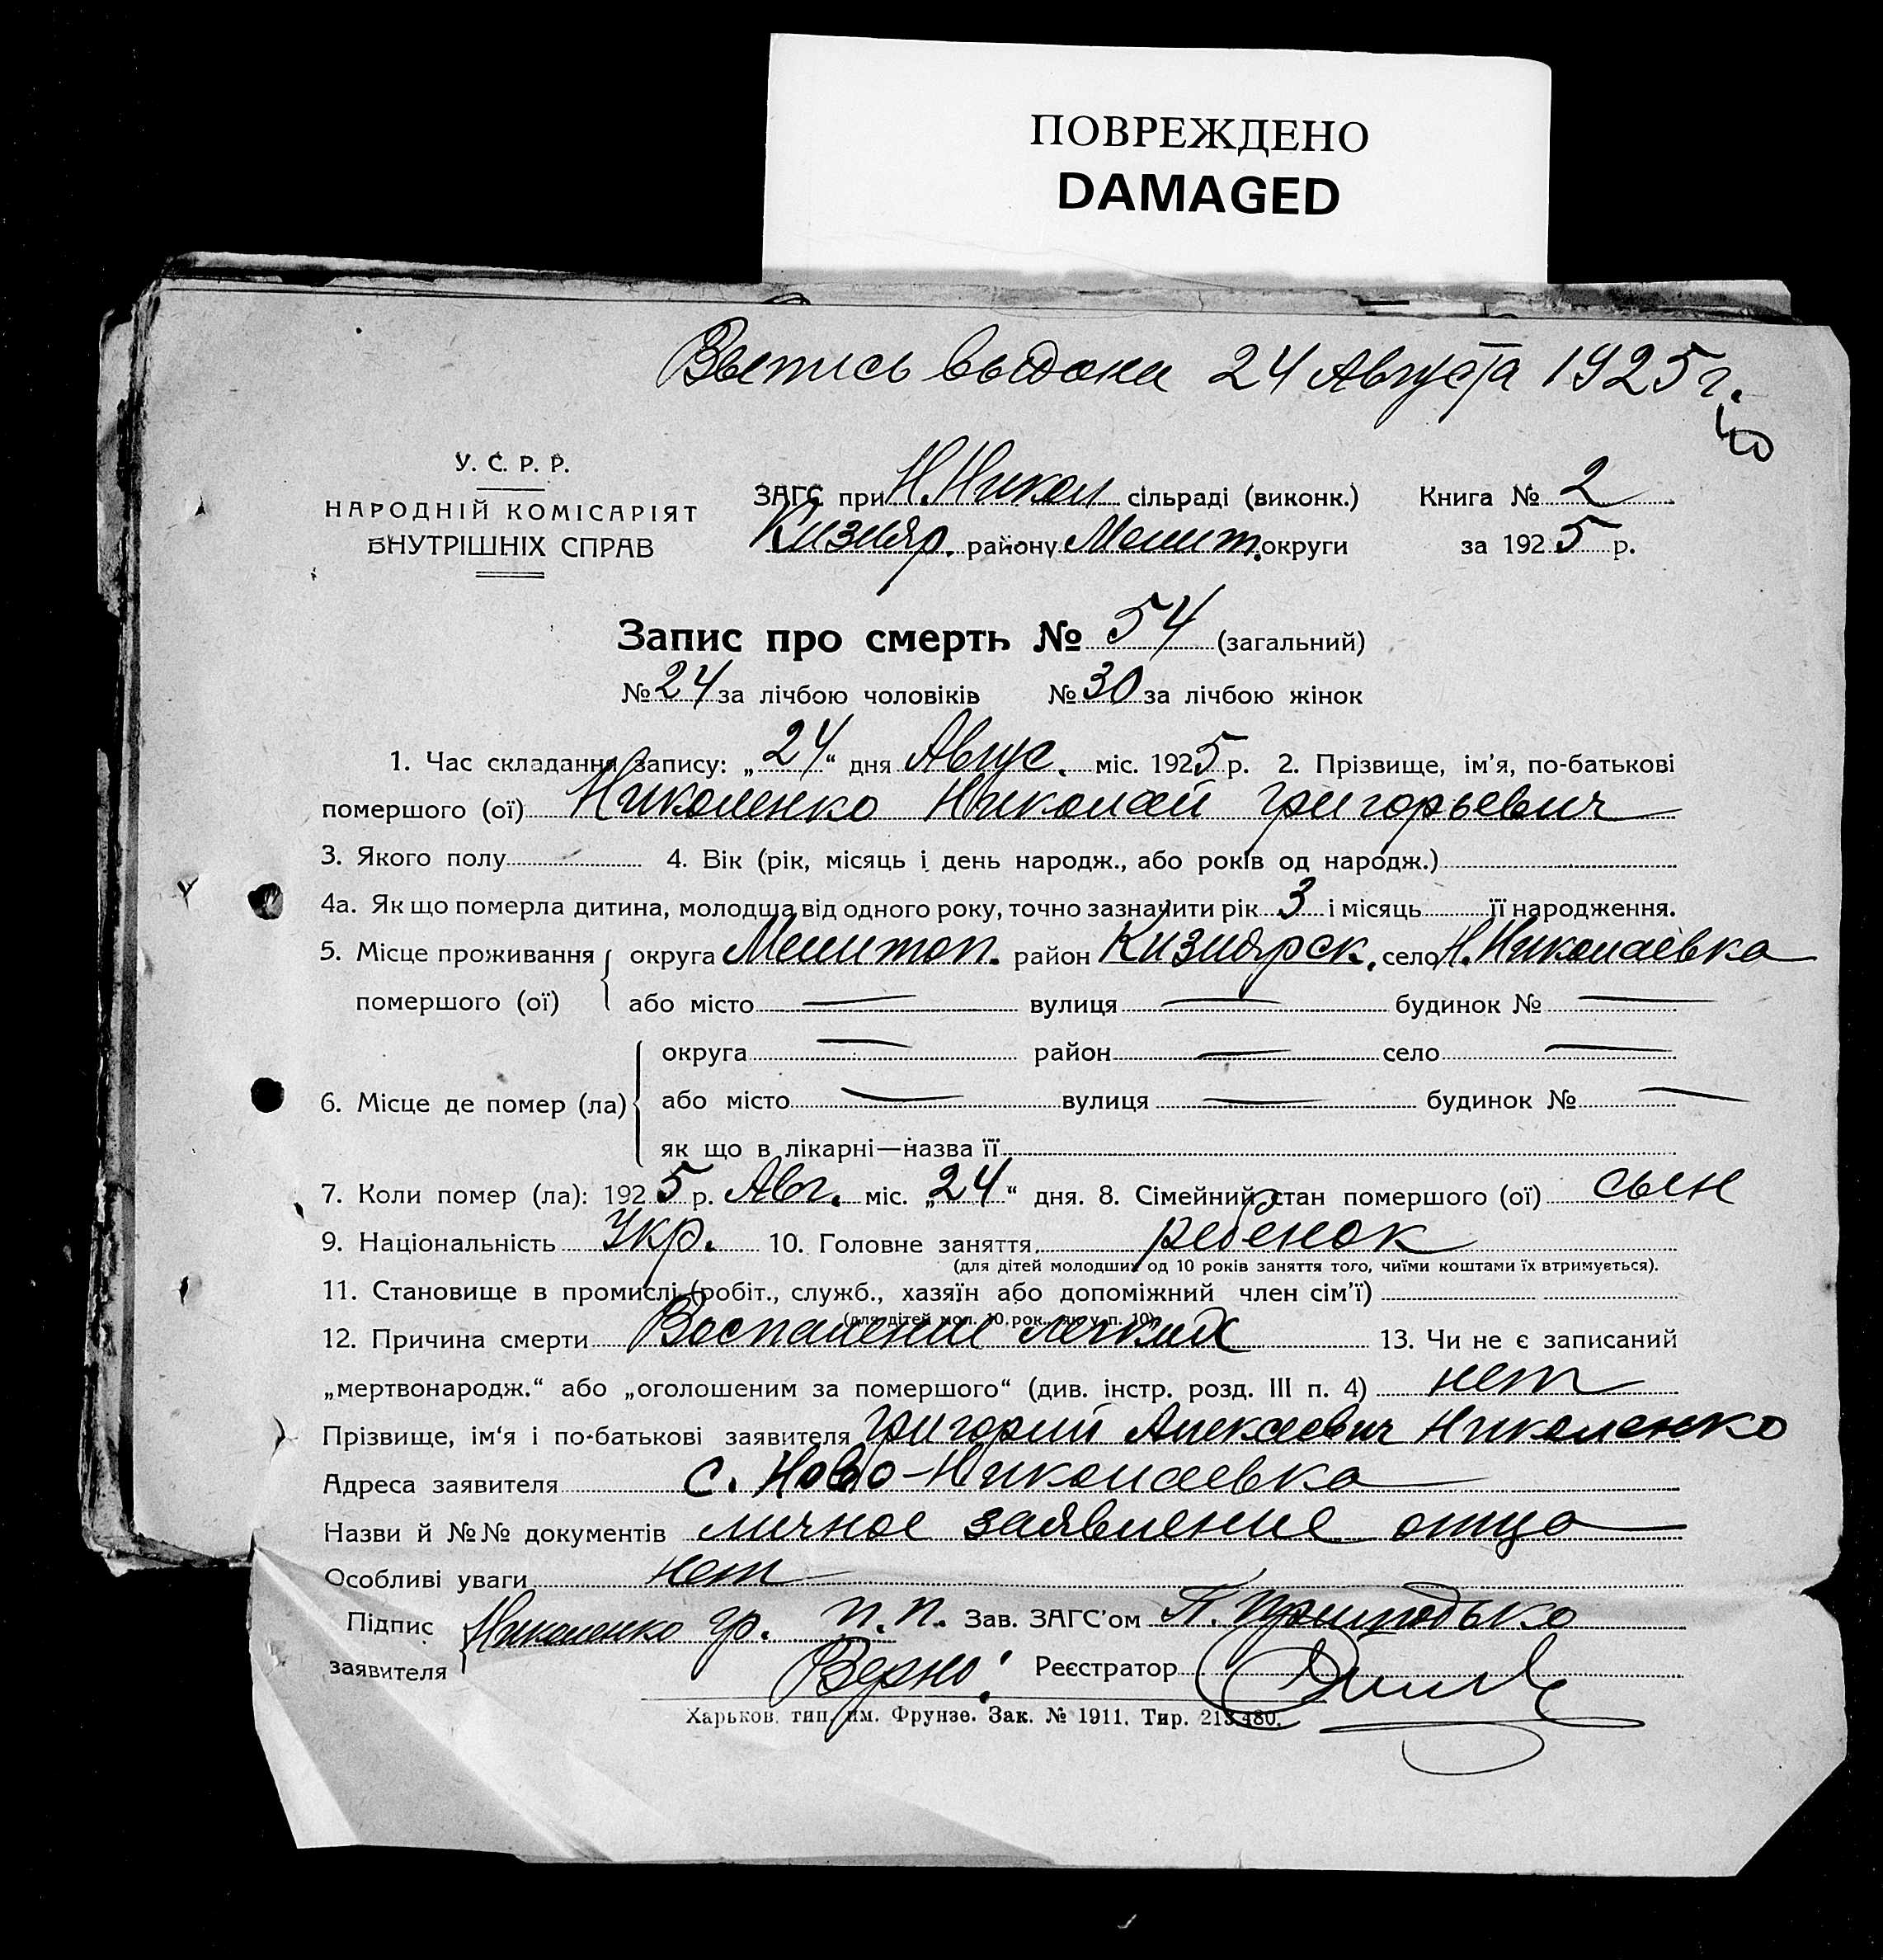 ПОВРЕЖДЕНО
DAMAGED
Выпись выдана 24 Августа 1925 г.
У. С. Р. Р.
НАРОДНІЙ КОМІСАРІЯТ
ВНУТРІШНІХ СПРАВ
ЗАГС при Н. Никол сільраді (виконк.) Книга № 2
Кизияр. району Мелит. округи за 1925 р.
Запис про смерть № 54 (загальний)
№ 24 за лічбою чоловіків № 30 за лічбою жінок
1. Час складання запису: „24“ дня Авгус. міс. 1925 р. 2. Прізвище, ім’я, по-батькові
помершого (ої) Николенко Николай Григорьевич
3. Якого полу 4. Вік (рік, місяць і день народж., або років од народж.)
4а. Як що померла дитина, молодша від одного року, точно зазначити рік 3 і місяць її народження.
5. Місце проживання округа Мелитоп. район Кизиярск. село Н. Николаевка
помершого (ої) або місто — вулиця — будинок № —
округа — район — село —
6. Місце де помер (ла) або місто — вулиця — будинок № —
як що в лікарні—назва її
7. Коли помер (ла): 1925 р. Авг. міс. „24“ дня. 8. Сімейний стан помершого (ої) сын
9. Національність Укр. 10. Головне заняття. ребенок
(для дітей молодших од 10 років заняття того, чиїми коштами їх втримується).
11. Становище в промислі (робіт., служб., хазяїн або допоміжний член сім’ї)
(для дітей мол. 10 рок. як у п. 10)
12. Причина смерти Воспаление легких 13. Чи не є записаний
„мертвонародж.“ або „оголошеним за помершого“ (див. інстр. розд. III п. 4) нет
Прізвище, ім’я і по-батькові заявителя Григорий Алексеевич Николенко
Адреса заявителя с. Ново-Николаевка
Назви й №№ документів личное заявление отца
Особливі уваги нет
Підпис заявителя Николенко Гр. п.п. Зав. ЗАГС’ом П. Приходько
Верно! Реєстратор
Харьков. тип. им. Фрунзе. Зак. № 1911. Тир. 213.480.